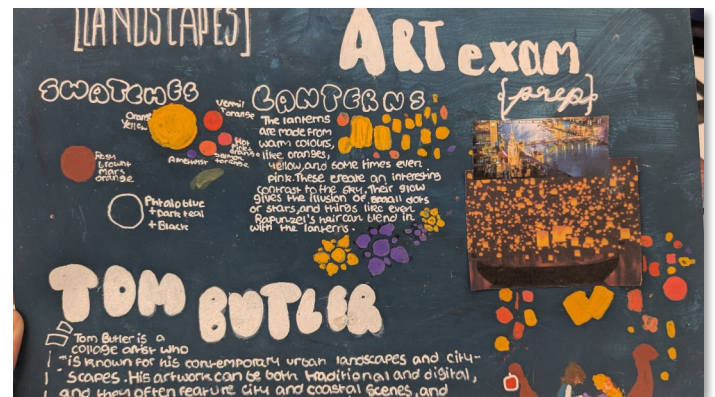 [LANDSCAPES]
ART exam
{prep}
SWATCHES
Orange
Yellow
Vermil
orange
Hot
Pink+
orange
Amethyst
Rosy
brown+
mars
orange
Phthaloblue
+Dark teal
+Black
LANTERNS
The lanterns
are made from
warm colours,
like oranges,
yellow, and some times even
pink. These create an interesting
contrast to the sky. Their glow
gives the illusion of small dots
or stars, and things like even
Rapunzel's hair can blend in
with the lanterns.
TOM BUTLER
Tom Butler is a
collage artist who
is known for his contemporary urban landscapes and city-
scapes. His artwork can be both traditional and digital,
and they often feature city and coastal scenes, and